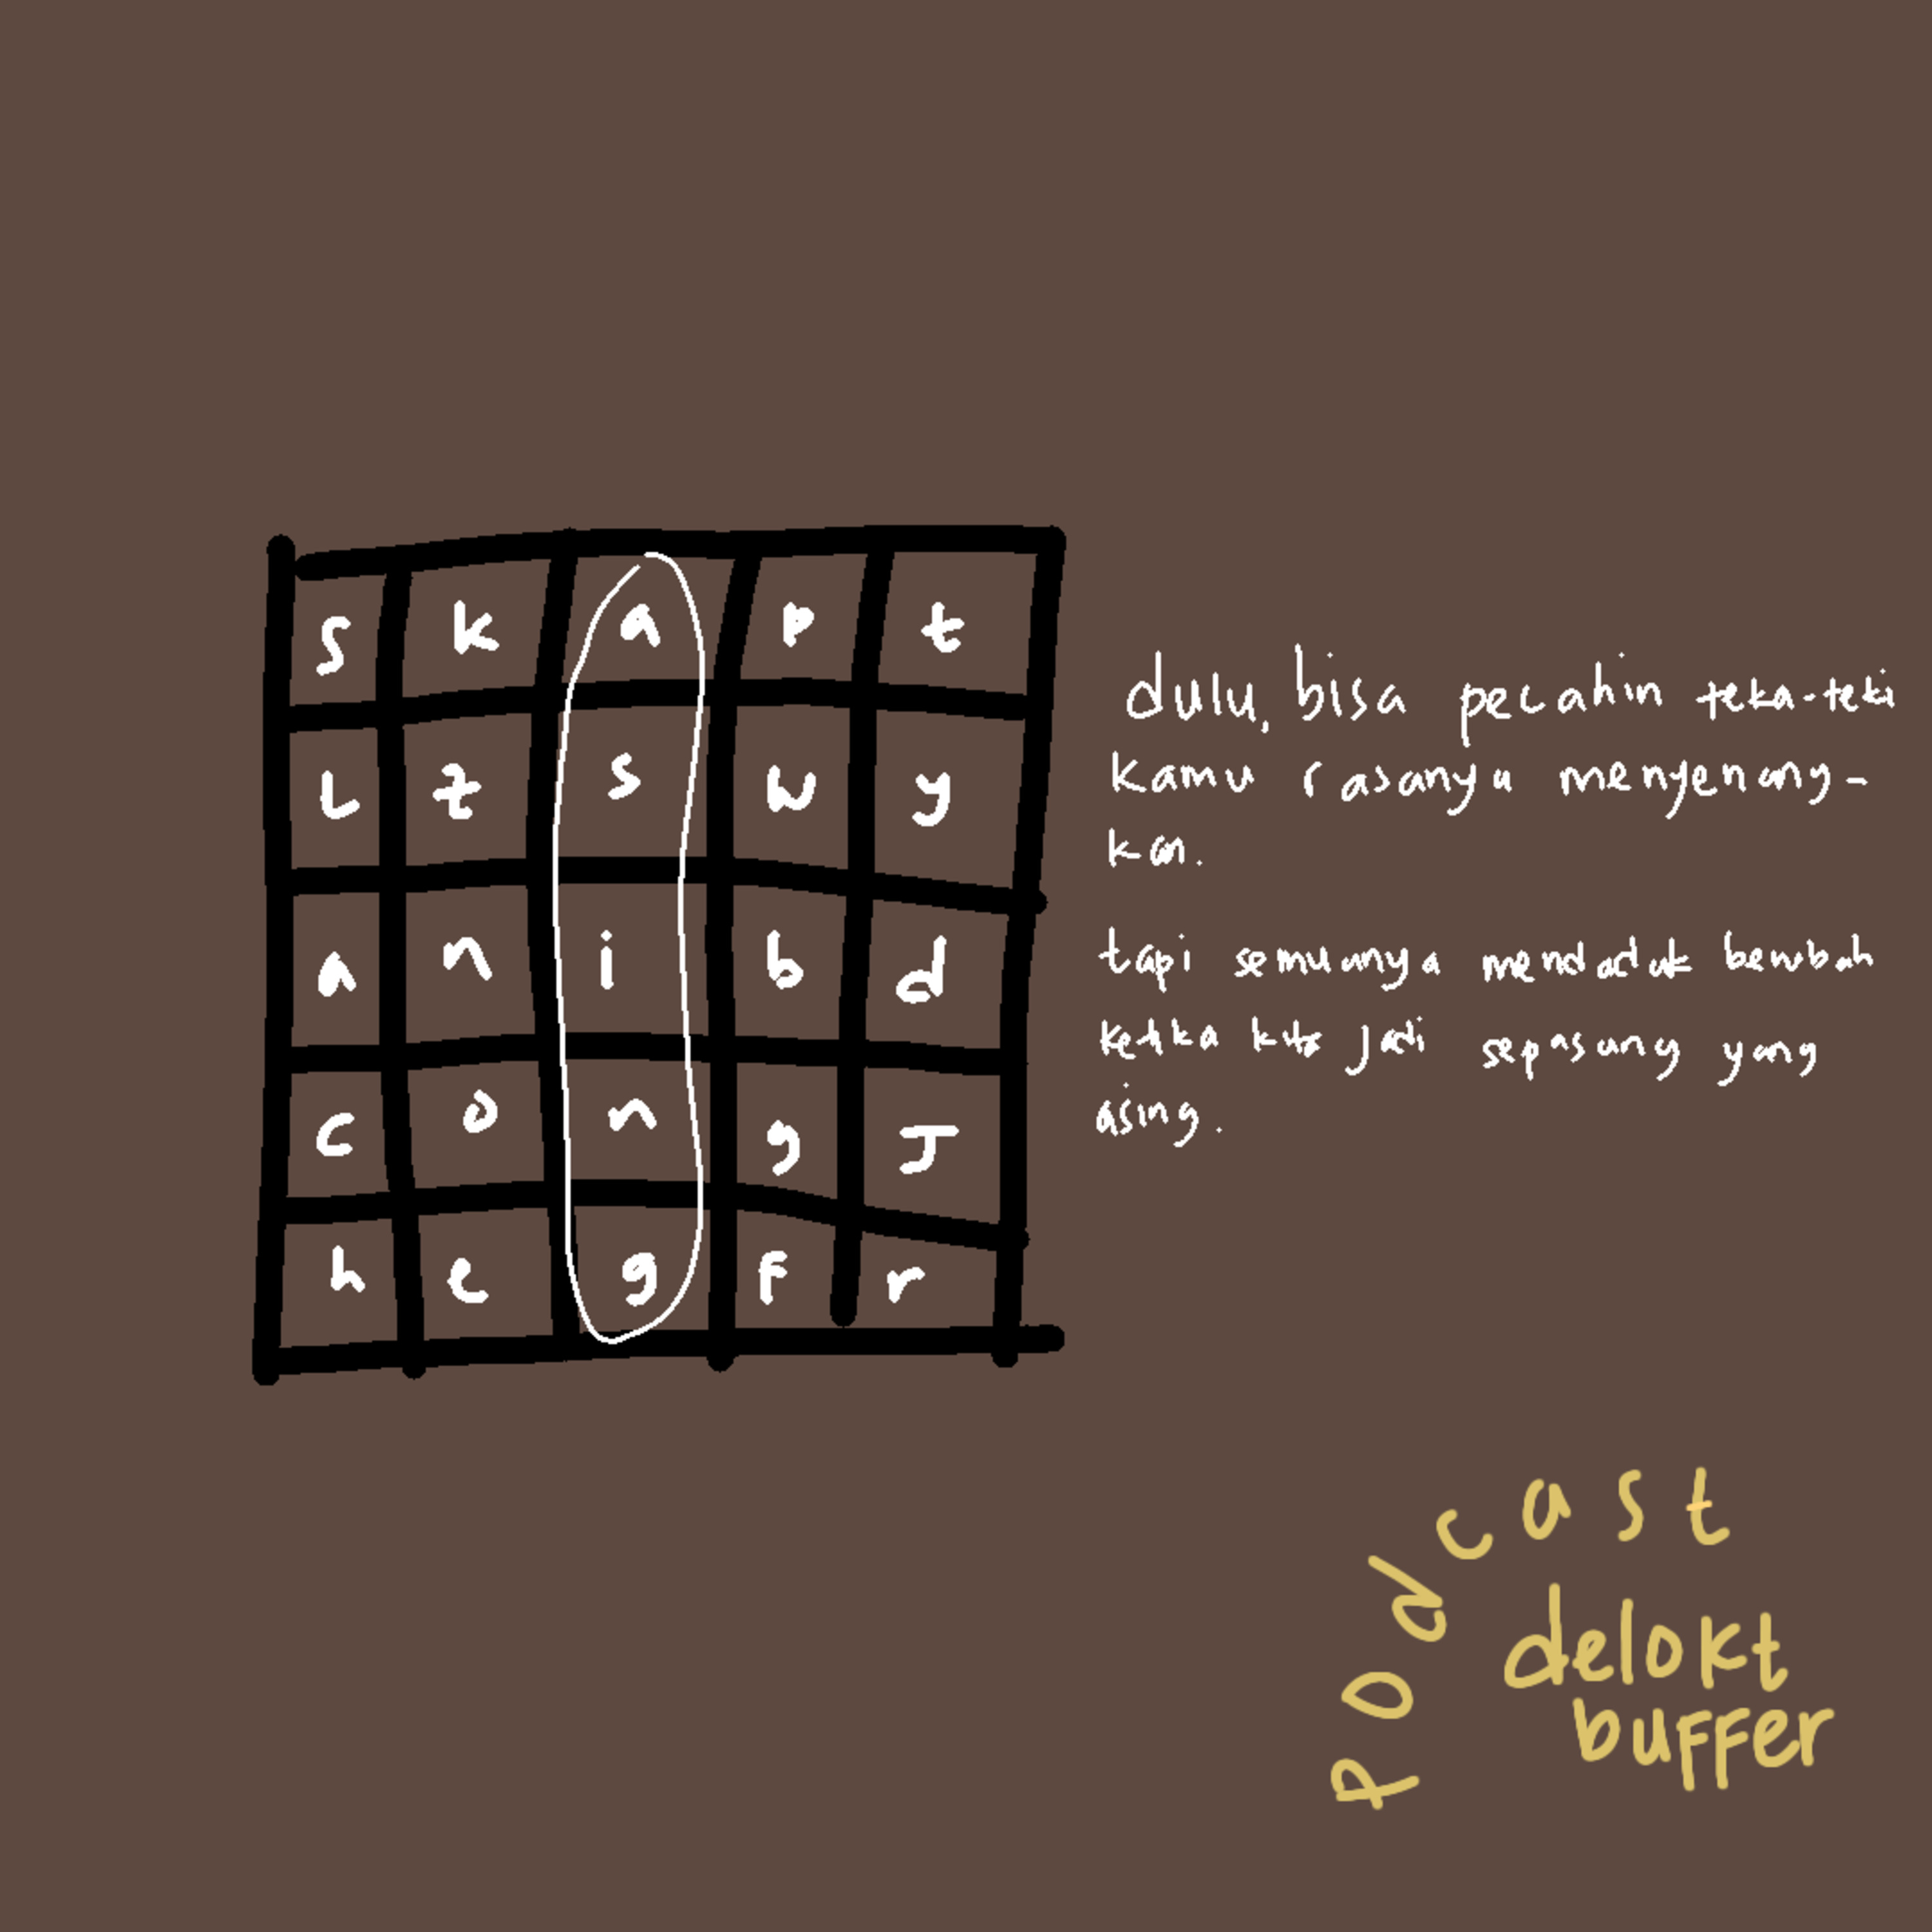 s k a p t
L z s w y
a n i b d
c o n g J
h e g f r
dulu, bisa pecahin teka-teki
kamu rasanya menyenang-
kan.
tapi semuanya mendadak berubah
ketika kita jadi sepasang yang
asing.
podcast
delokt
buffer